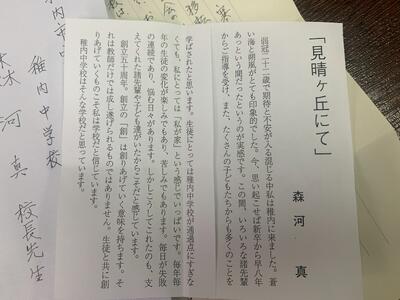 「見晴ヶ丘にて」
森河 真
弱冠二十二歳で期待と不安が入る混じる中私は稚内に来ました。蒼
い海と朔風がとても印象的でした。今、思い起こせば新卒から早八年
あっという間だったというのが実感です。この間、いろいろな諸先輩
からご指導を受け、また、たくさんの子どもたちからも多くのことを
学ばされたと思います。生徒にとっては稚内中学校が通過点にすぎな
くても、私にとっては「私が家」という感じでいっぱいです。毎年毎
年の生徒の変化が楽しみでもあり、苦しみでもあります。毎日が失敗
の連続であり、悩む日々があります。しかしこうしてこれたのも、支
えてくれた諸先輩や子ども達がいたからこそだと感じています。
創立五十周年。創立の「創」は創りあげていく意味を持ちます。そ
れは教師だけでは成し遂げられるものではありません。生徒と共に創
りあげていくものこそ私は学校だと信じています。
稚内中学校はそんな学校だと思っています。
稚内中学校
森河 真 校長先生